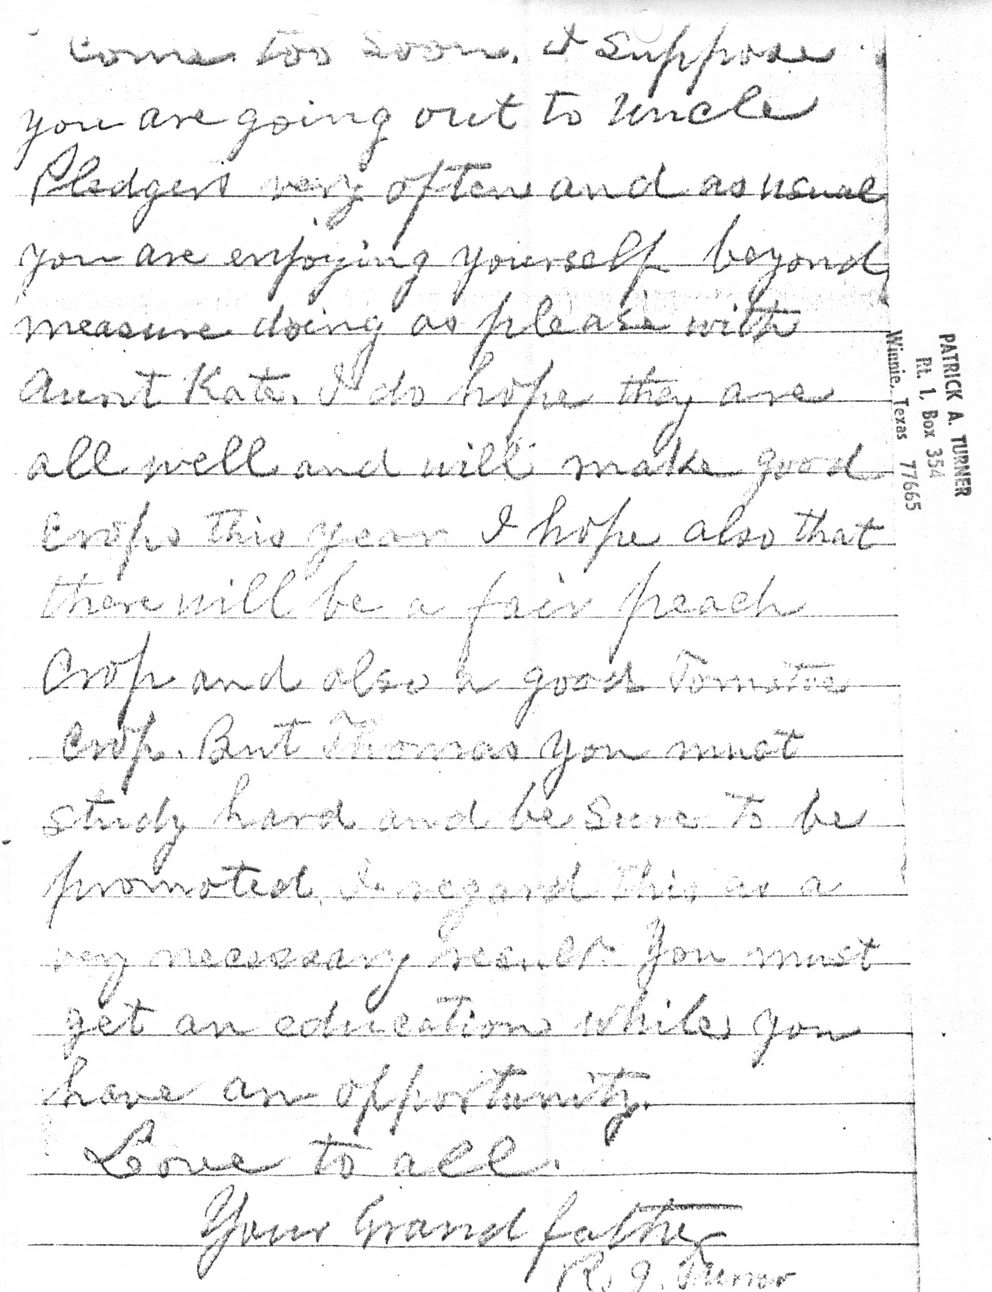 come too soon. I suppose
you are going out to Uncle
Pledgers very often and as usual
you are enjoying yourself beyond
measure doing as please with
Aunt Kate. I do hope they are
all well and will make good
crops this year I hope also that
there will be a fair peach
Crop and also a good Tomatoe
crop. But Thomas you must
study hard and be sure to be
promoted. I regard this as a
very necessary result. You must
get an education while you
have an opportunity.
Love to all.
Your Grand father
R. J. Turner
PATRICK A. TURNER
Rt. 1, Box 354
Winnie, Texas 77665